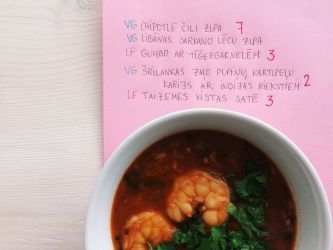 VG ČIPOTLE ČILI ZUPA 7
VG LIBĀNAS SARKANO LĒCU ZUPA
LF GUMBO AR TĪĢERGARNELĒM 3
VG ŠRILANKAS ZAĻO PUPIŅU, KARTUPEĻU
KARIJS AR INDIJAS RIEKSTIEM 2
LF TAIZEMES VISTAS SATĒ 3